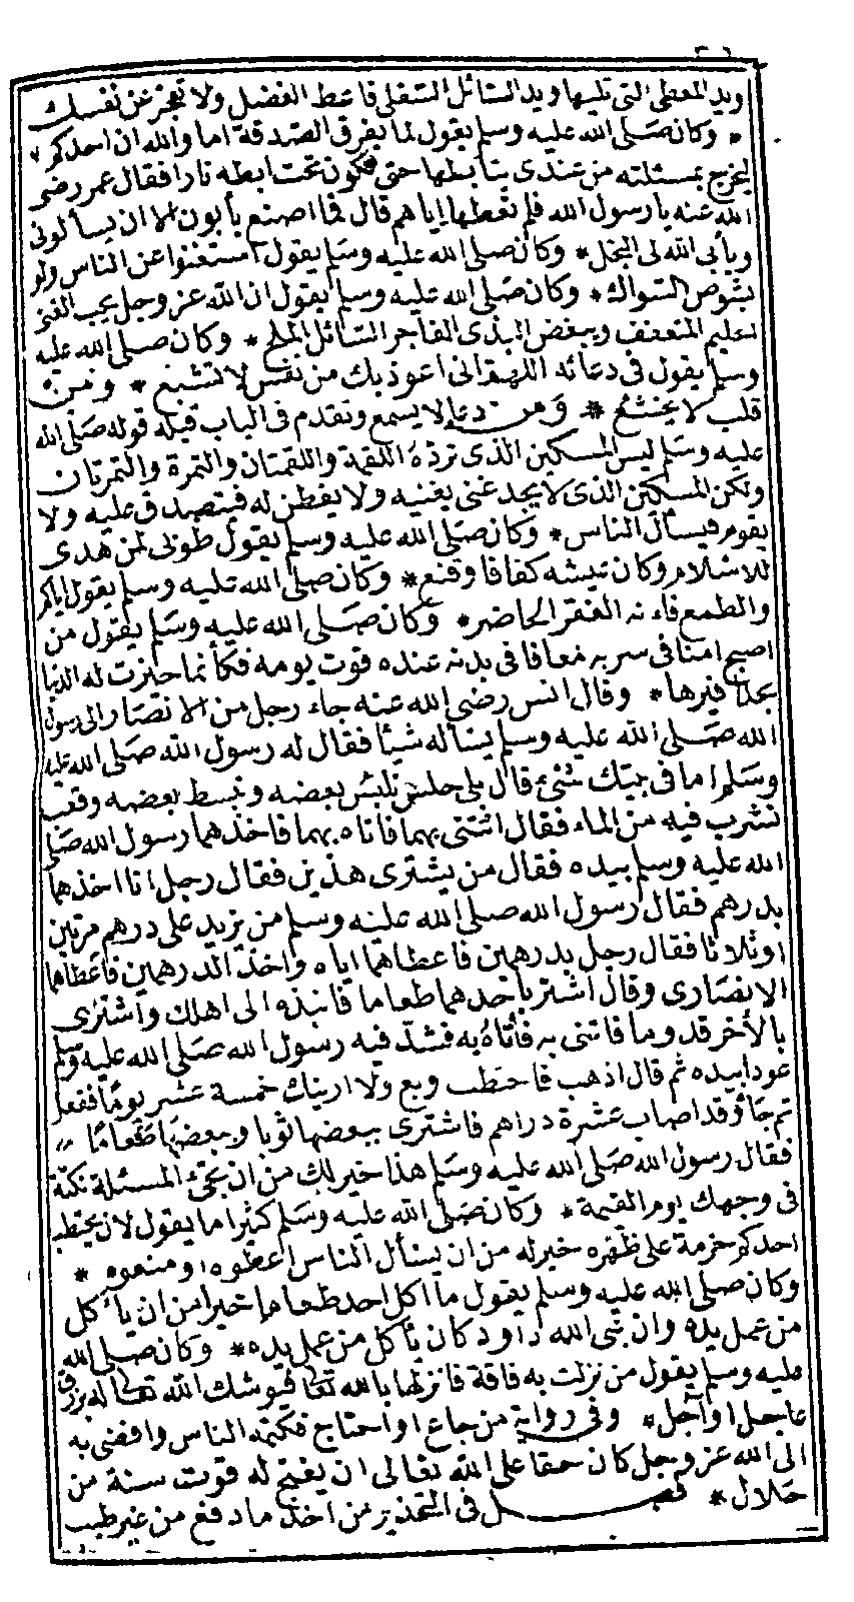 ويد المعطى التى تليها ويد السائل السفلى فاعط الفضل ولا تعجز عن نفسك
* وكان صلى الله عليه وسلم يقول لما يفرق الصدقة اما والله ان احدكم
ليخرج بمسئلته من عندى يتأبطها حتى تكون تحت ابطه نارا فقال عمر رضى
الله عنه يا رسول الله فلم تعطها اياهم قال فما اصنع يأبون الا ان يسألونى
ويأبى الله لى البخل * وكان صلى الله عليه وسلم يقول استغنوا عن الناس ولو
بشوص السواك * وكان صلى الله عليه وسلم يقول ان الله عز وجل يحب الغنى
لحليم المتعفف ويبغض البذى الفاجر السائل الملح * وكان صلى الله عليه
وسلم يقول فى دعائه اللهم انى اعوذ بك من نفس لا تشبع * ومن
قلب لا يخشع * ومن دعا لا يسمع وتقدم فى الباب قبله قوله صلى الله
عليه وسلم ليس المسكين الذى ترده اللقمة واللقمتان والتمرة والتمرتان
ولكن المسكين الذى لا يجد غنى يغنيه ولا يفطن له فيتصدق عليه ولا
يقوم فيسأل الناس * وكان صلى الله عليه وسلم يقول طوبى لمن هدى
للاسلام وكان عيشه كفافا وقنع * وكان صلى الله عليه وسلم يقول اياكم
والطمع فانه الفقر الحاضر * وكان صلى الله عليه وسلم يقول من
اصبح امنا فى سربه معافا فى بدنه عنده قوت يومه فكأنما حيزت له الدنيا
بحذافيرها * وقال انس رضى الله عنه جاء رجل من الانصار الى رسول
الله صلى الله عليه وسلم يسأله شيأ فقال له رسول الله صلى الله عليه
وسلم اما فى بيتك شئ قال بلى حلس نلبس بعضه ونبسط بعضه وقعب
نشرب فيه من الماء فقال ائتنى بهما فاتاه بهما فاخذهما رسول الله صلى
الله عليه وسلم بيده فقال من يشترى هذين فقال رجل انا اخذهما
بدرهم فقال رسول الله صلى الله عليه وسلم من يزيد على درهم مرتين
او ثلاثا فقال رجل بدرهمين فاعطاهما اياه واخذ الدرهمين فاعطاهما
الانصارى وقال اشتر باحدهما طعاما فانبذه الى اهلك واشترى
بالأخر قدوما فاتنى به فأتاه به فشد فيه رسول الله صلى الله عليه وسلم
عودا بيده ثم قال اذهب فاحتطب وبع ولا ارينك خمسة عشر يوما ففعل
ثم جاء وقد اصاب عشرة دراهم فاشترى ببعضها ثوبا وببعضها طعاما
فقال رسول الله صلى الله عليه وسلم هذا خير لك من ان تجئ المسئلة نكتة
فى وجهك يوم القيمة * وكان صلى الله عليه وسلم كثيرا ما يقول لان يحتطب
احدكم حزمة على ظهره خير له من ان يسأل الناس اعطوه او منعوه *
وكان صلى الله عليه وسلم يقول ما اكل احد طعاما خيرا من ان يأكل
من عمل يده وان نبى الله داود كان يأكل من عمل يده * وكان صلى الله
عليه وسلم يقول من نزلت به فاقة فانزلها بالله تعالى فيوشك الله تعالى له برزق
عاجل او آجل * وفى رواية من جاع او احتاج فكتمه الناس وافضى به
الى الله عز وجل كان حقا على الله تعالى ان يفتح له قوت سنة من
حلال * فصل فى التحذير من اخذ ما دفع من غير طيب